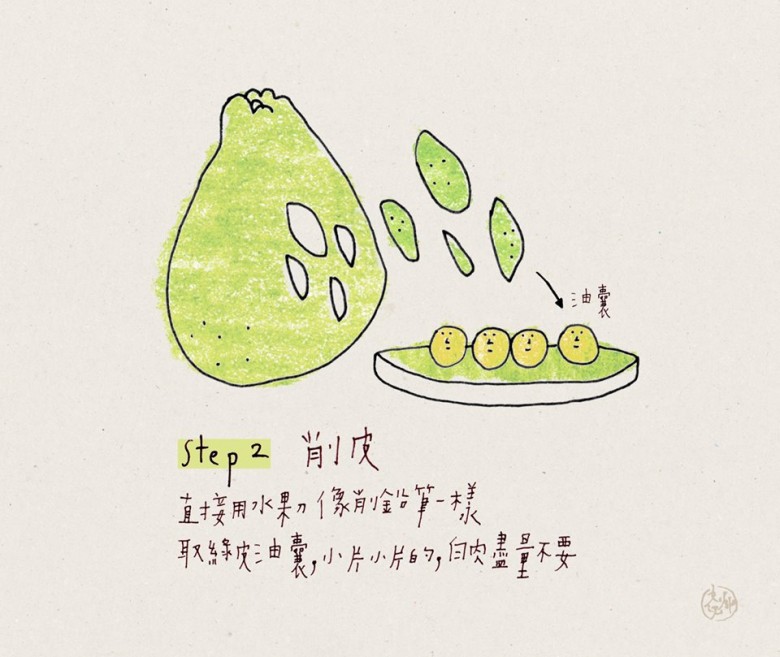 油囊
Step 2 削皮
直接用水果刀像削鉛筆一樣
取綠皮油囊,小片小片的,白肉盡量不要